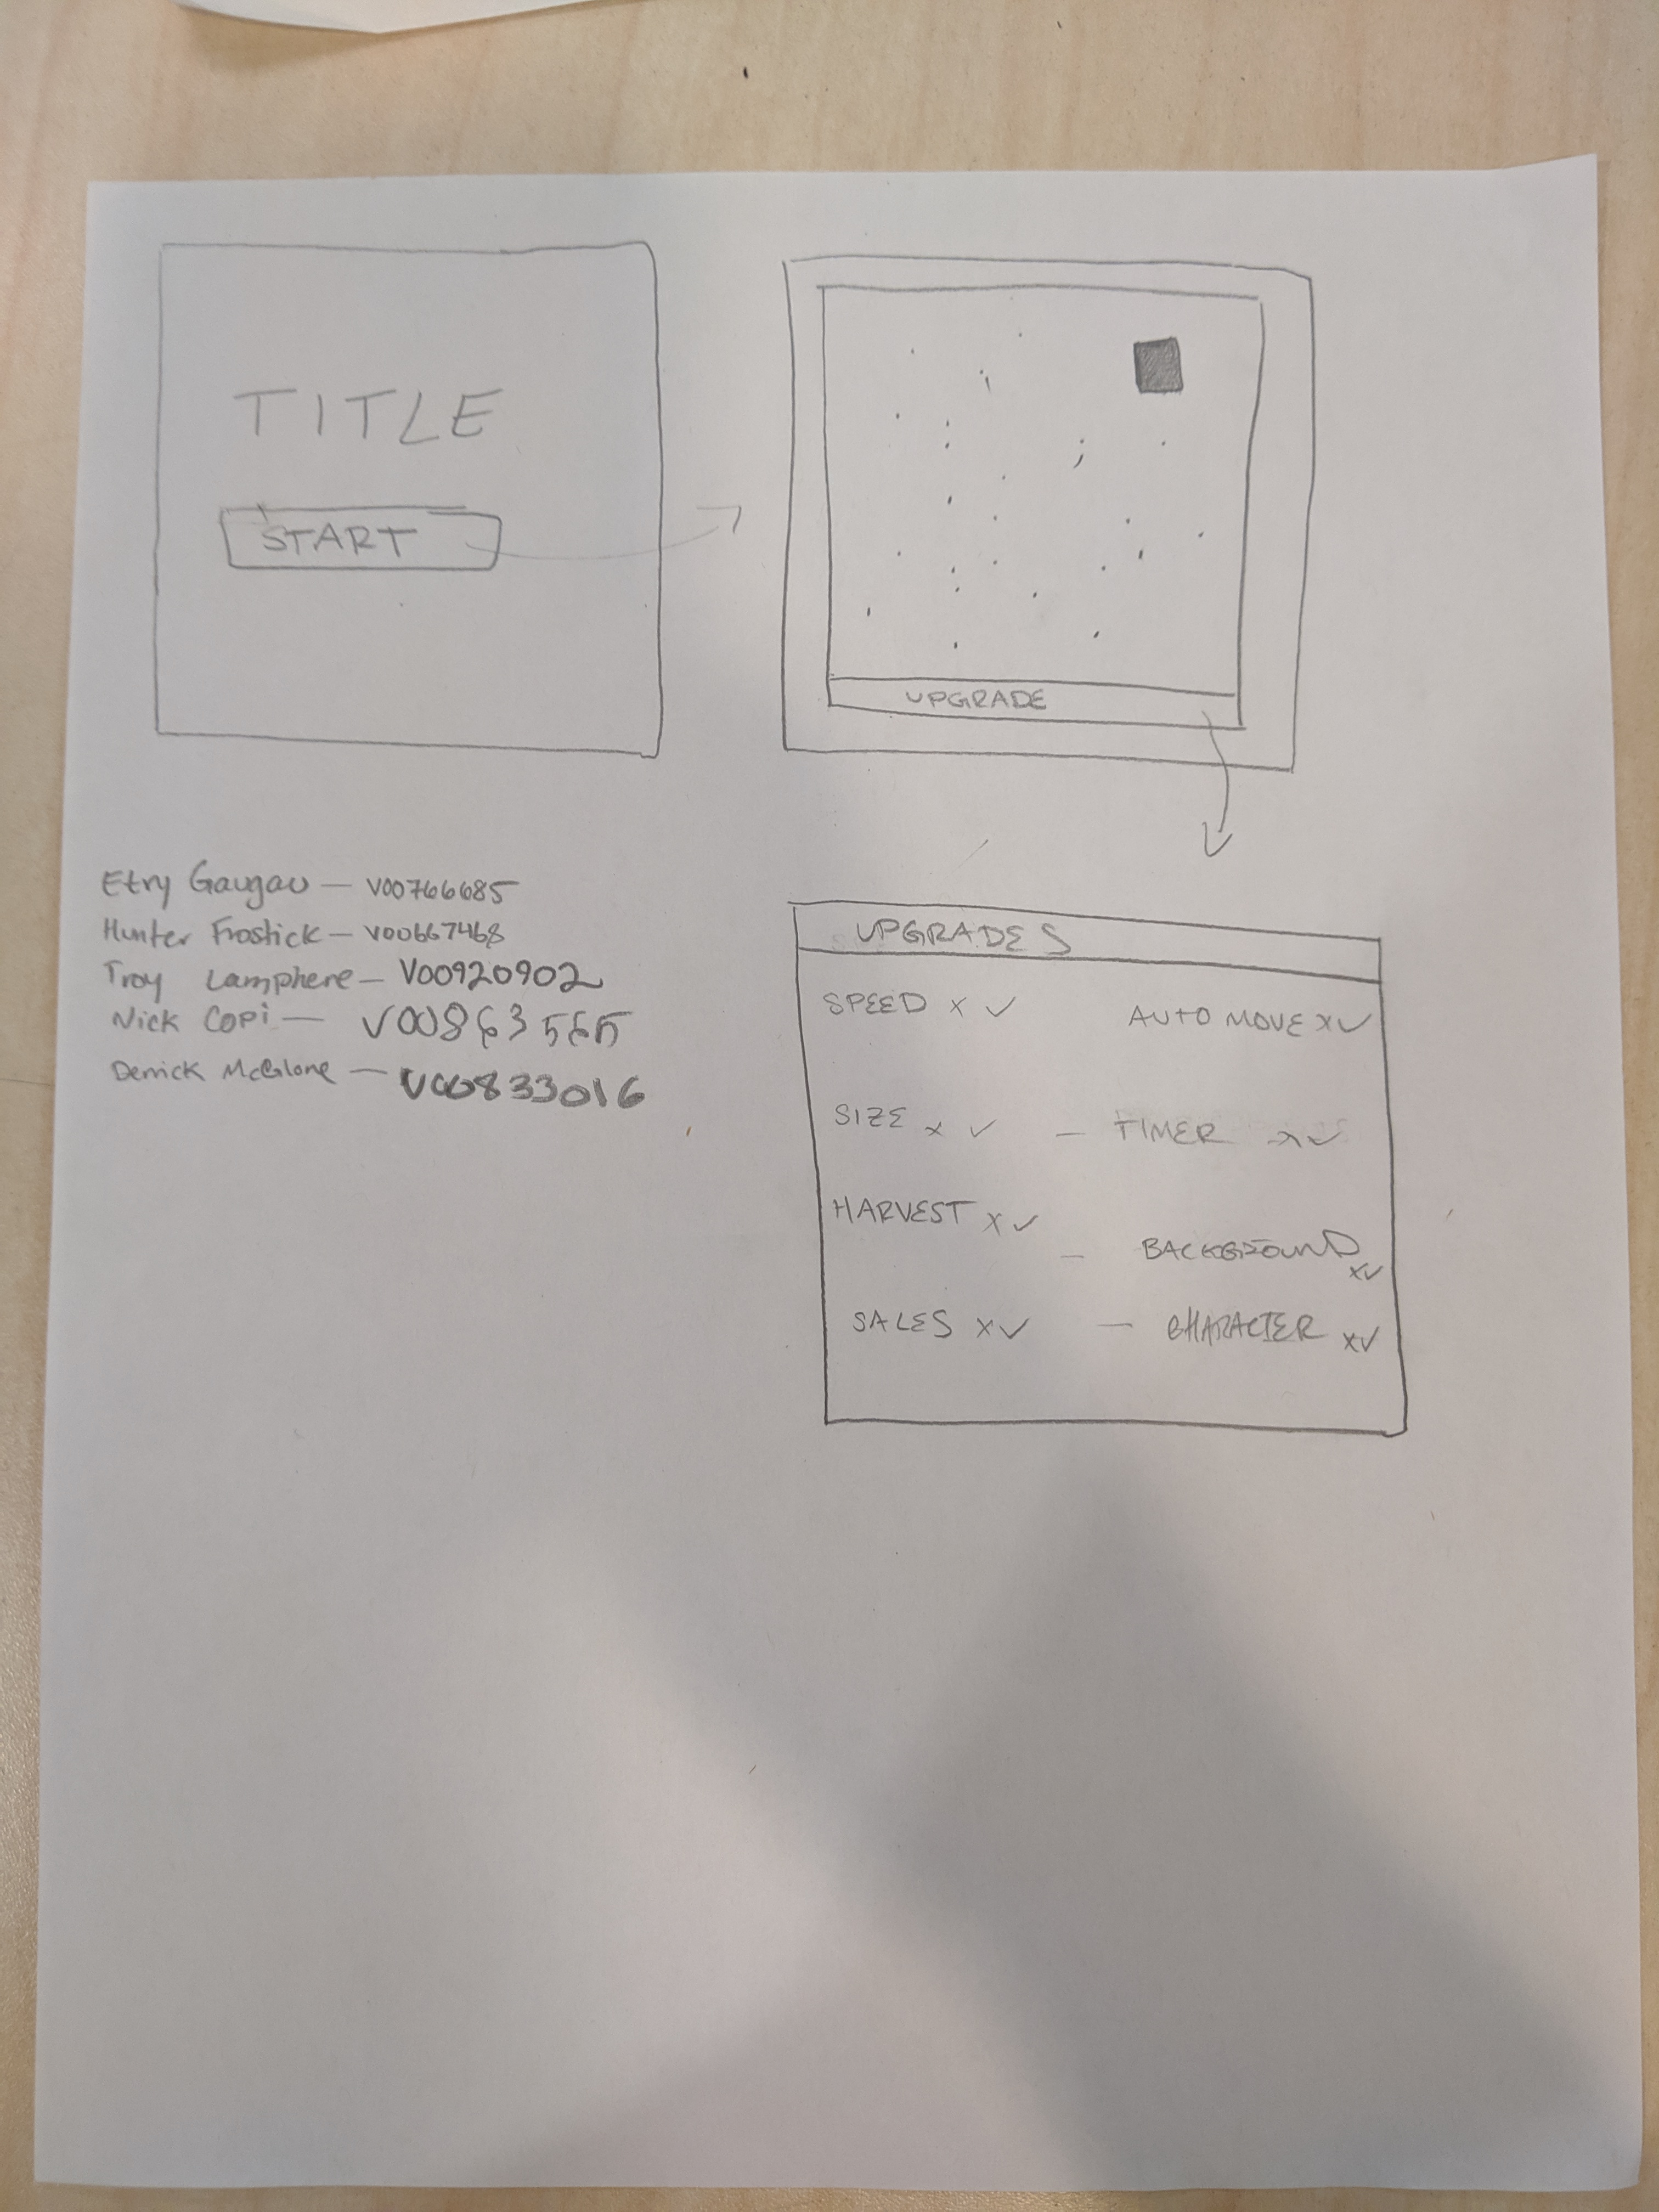 TITLE
START
UPGRADE
Hunter Frostick - V00667468
Troy Lamphere - V00920902
Nick Copi - V00863565
Derrick McGlone -
UPGRADES
SPEED x ✓ AUTO MOVE x ✓
SIZE x ✓ - TIMER x ✓
HARVEST x ✓ - BACKGROUND x ✓
SALES x ✓ - CHARACTER x ✓